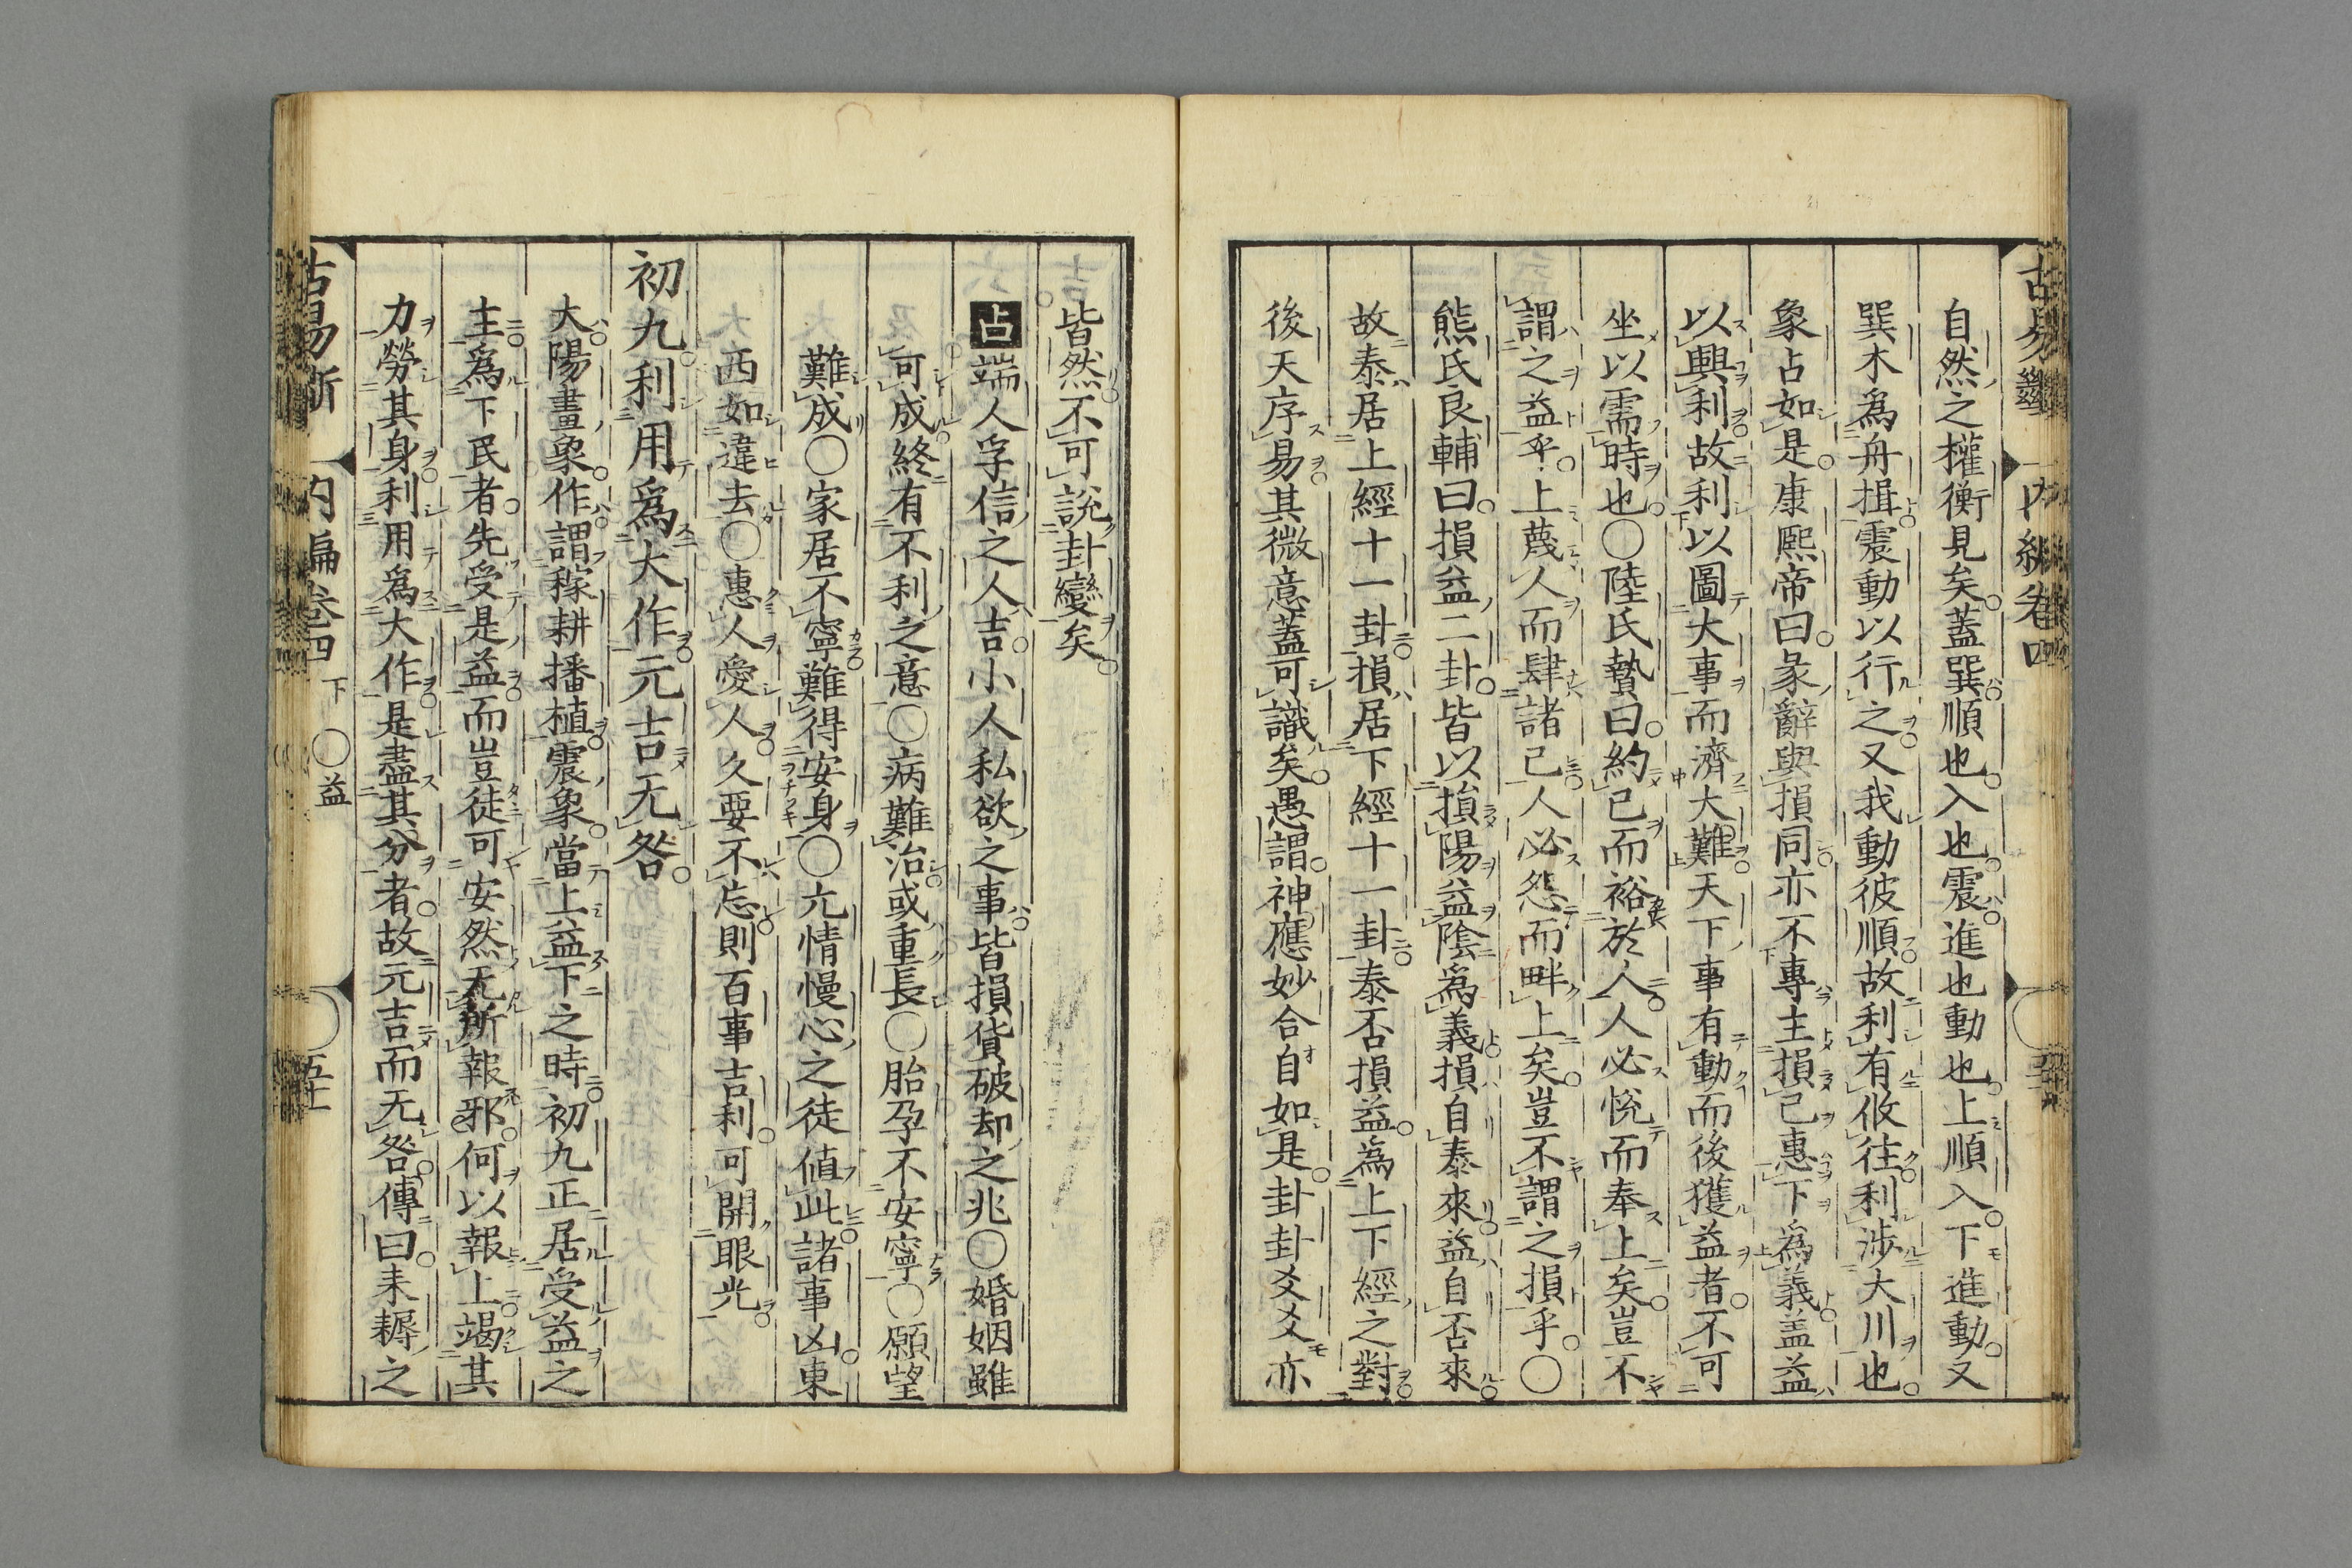 自然之權衡見矣蓋巽順也入也震進也動也上順入下進動又
巽木爲舟揖震動以行之又我動彼順故利有攸往利涉大川也
象占如是康熙帝曰彖辭與損同亦不專主損己惠下爲義盖益
以興利故利以圖大事而濟大難天下事有動而後獲益者不可
坐以需時也〇陸氏贄曰約己而裕於人人必悅而奉上矣豈不
謂之益乎上蔑人而肆諸己人必怨而畔上矣豈不謂之損乎〇
熊氏良輔曰損益二卦皆以損陽益陰爲義損自泰來益自否來
故泰居上經十一卦損居下經十一卦泰否損益為上下經之對
後天序易其微意蓋可識矣愚謂神應妙合自如是卦卦爻爻亦
皆然不可說卦變矣
占端人孚信之人吉小人私欲之事皆損貨破却之兆〇婚姻雖
可成終有不利之意〇病難治或重長〇胎孕不安寧〇願望
難成〇家居不寧難得安身〇亢情慢心之徒値此諸事凶東
西如違去〇惠人愛人久要不忘則百事吉利可開眼光
初九利用爲大作元吉无咎
大陽畫象作謂稼耕播植震象當上益下之時初九正居受益之
主爲下民者先受是益而豈徒可安然无所報邪何以報上竭其
力勞其身利用爲大作是盡其分者故元吉而无咎傳曰耒耨之
内編卷四 下 〇益
五十一